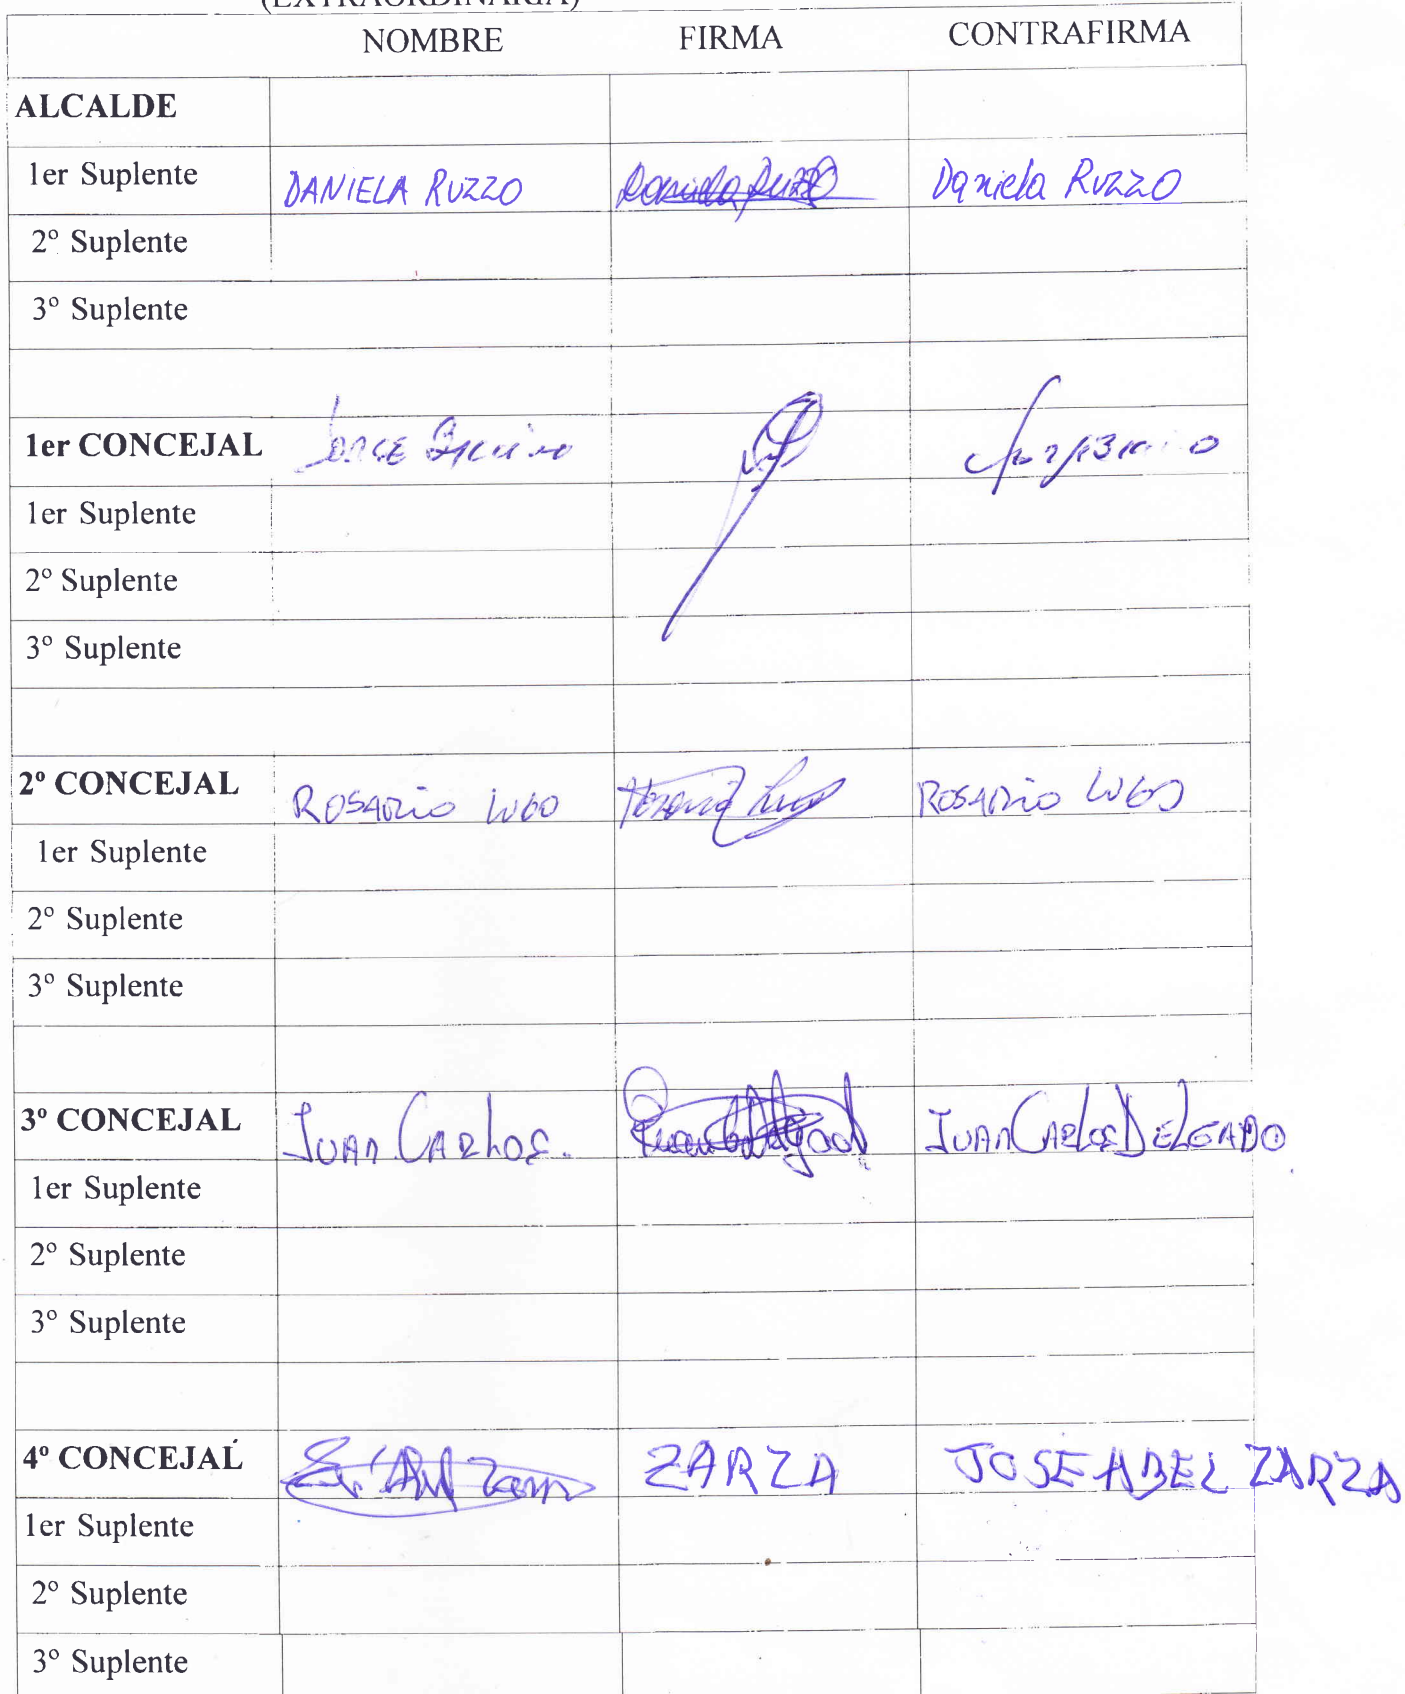 (EXTRAORDINARIA)
NOMBRE FIRMA CONTRAFIRMA
ALCALDE
1er Suplente DANIELA RUZZO Daniela Ruzzo Daniela RUZZO
2º Suplente
3º Suplente
1er CONCEJAL JORGE
1er Suplente
2º Suplente
3º Suplente
2º CONCEJAL ROSARIO LUGO Lugo ROSARIO LUGO
1er Suplente
2º Suplente
3º Suplente
3º CONCEJAL JUAN CARLOS. JUAN CARLOS DELGADO
1er Suplente
2º Suplente
3º Suplente
4º CONCEJAL ZARZA JOSE ABEL ZARZA
1er Suplente
2º Suplente
3º Suplente